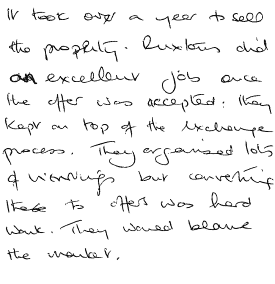 It took over a year to sell
the property. Ruxtons did
an excellent job once
the offer was accepted. They
kept on top of the exchange
process. They organised lots
of viewings but converting
these to offers was hard
work. They would blame
the market.